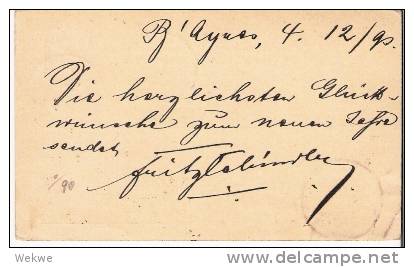 B'Ayres, 4. 12/90.
Die herzlichsten Glück-
wünsche zum neuen Jahre
sendet
Fritz Schindler
/90
Wekwe
delcampe.net